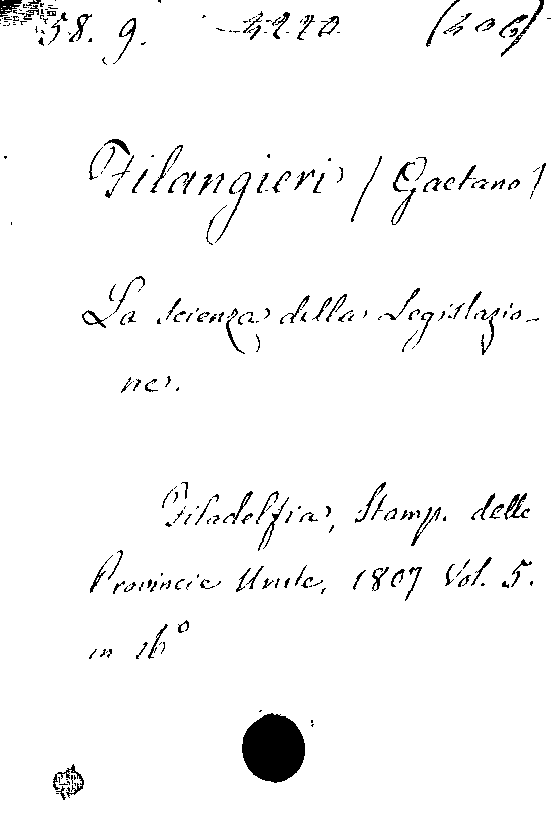 58. 9. 4220 (406)
Filangieri (Gaetano)
La scienza della Legislazio-
ne.
Filadelfia, Stamp. delle
Provincie Unite, 1807 Vol. 5.
in 16º